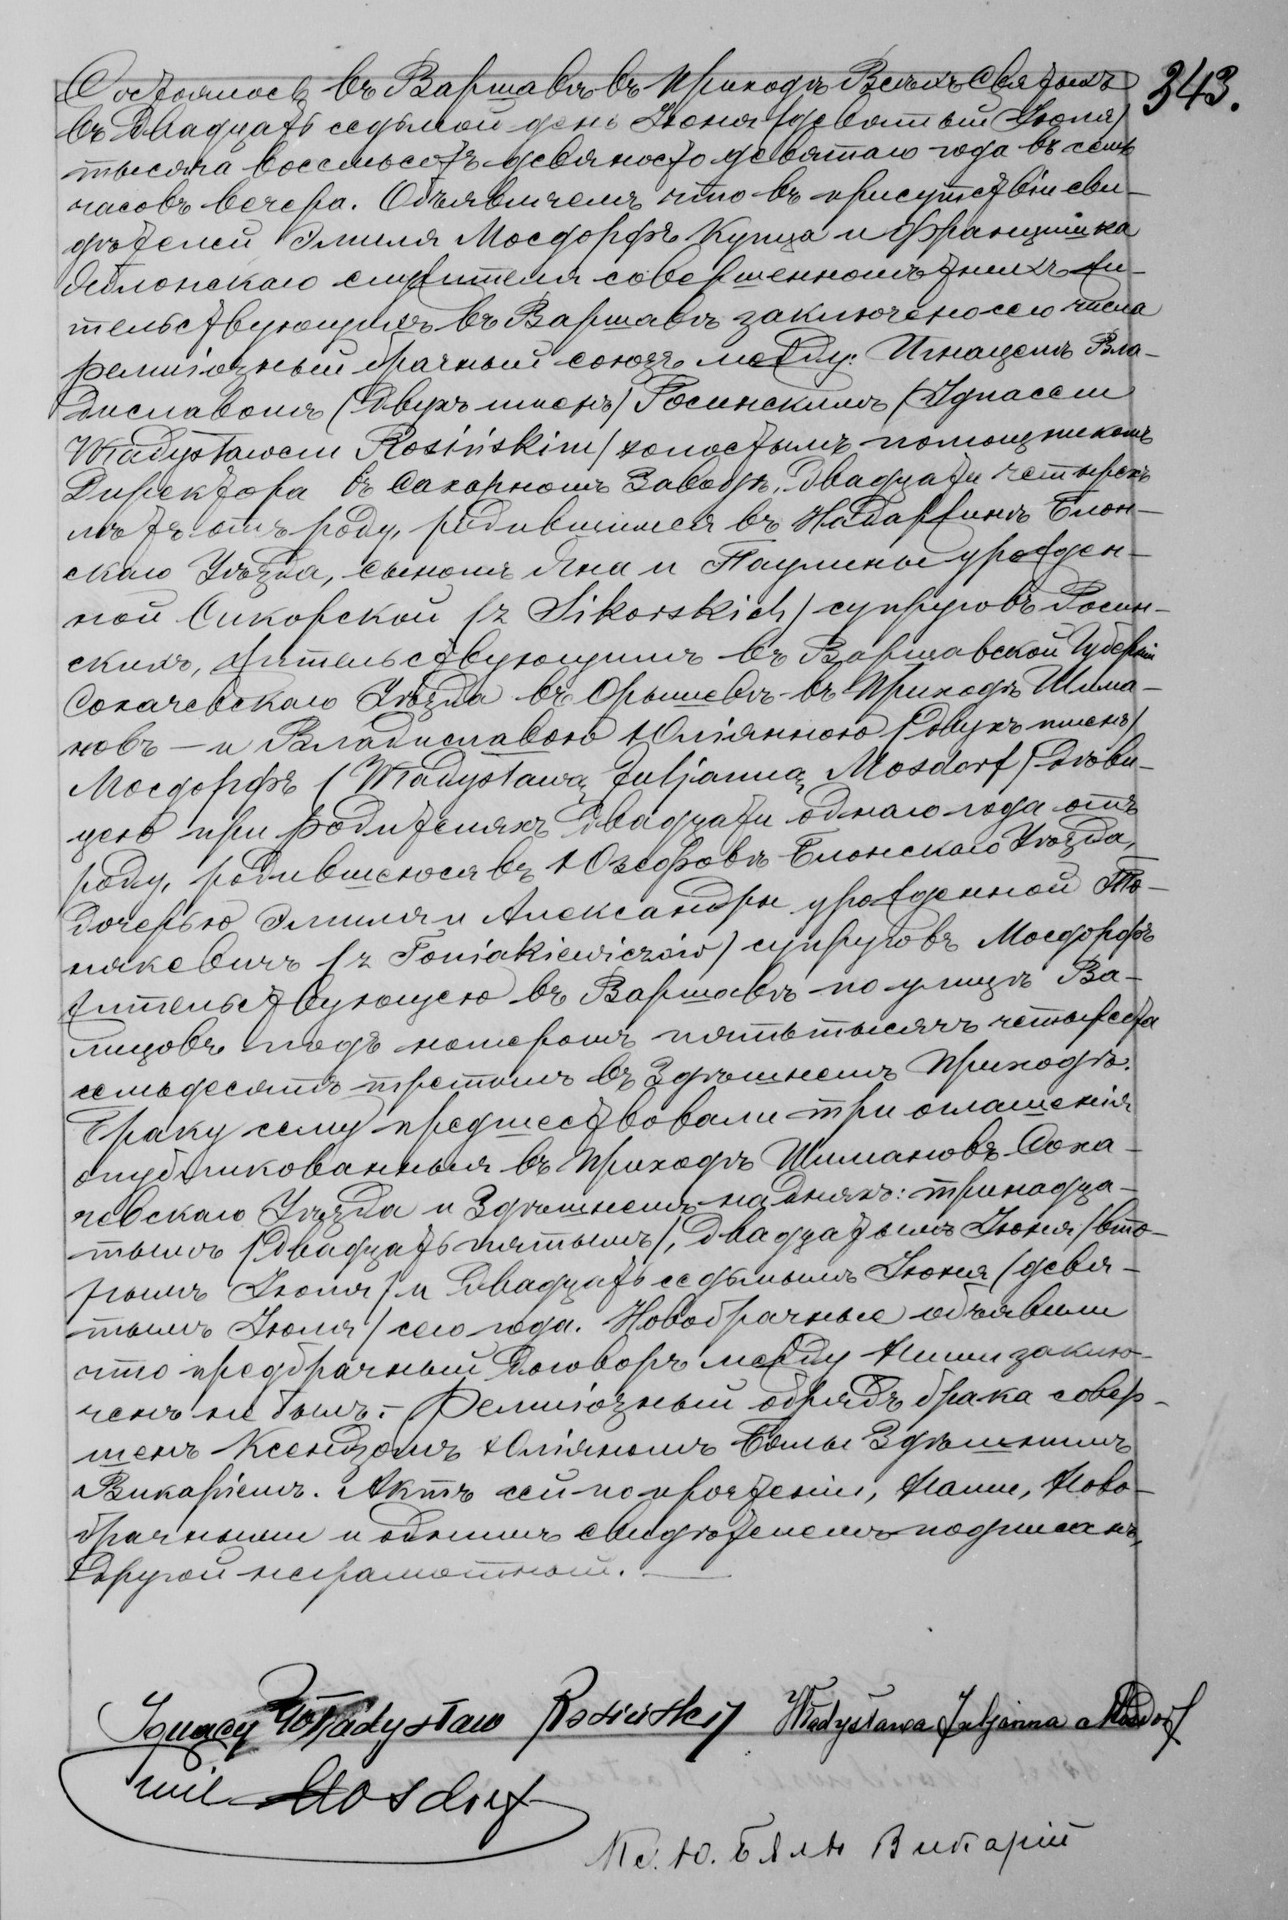 Состоялось въ Варшавѣ въ приходѣ Всѣхъ Святыхъ
343.
въ двадцать седьмой день Іюня /девятый Іюля/
тысяча восемьсотъ девяносто девятаго года въ семь
часовъ вечера. Объявляемъ что въ присутствіи сви-
дѣтелей Эмиля Мосдорфъ Купца и Францишка
Яблонскаго служителя совершеннолѣтнихъ жи-
тельствующихъ въ Варшавѣ заключено сего числа
религіозный брачный союзъ между: Игнацемъ Вла-
диславомъ /двухъ именъ/ Росинскимъ /Ignacem
Władysławem Rosińskim/ холостымъ помощникомъ
Директора въ Сахарномъ Заводѣ, двадцати четырехъ
лѣтъ отъ роду, родившимся въ Надаржинѣ Блон-
скаго Уѣзда, сыномъ Яна и Паулины урожден-
ной Сикорской /z Sikorskich/ супруговъ Росин-
скихъ, жительствующимъ въ Варшавской Губерніи
Сохачевскаго Уѣзда въ Орышевѣ въ приходѣ Шима-
новъ — и Владиславою Юліянною /двухъ именъ/
Мосдорфъ /Władysławą Juljanną Mosdorf/ дѣви-
цею при родителяхъ двадцати однаго года отъ
роду, родившеюся въ Юзефовѣ Блонскаго Уѣзда,
дочерью Эмиля и Александры урожденной То-
някевичъ /z Toniakiewiczów/ супруговъ Мосдорфъ
жительствующею въ Варшавѣ по улицѣ Ва-
лицовъ подъ номеромъ пять тысячъ четыреста
семьдесятъ третьимъ въ здѣшнемъ приходѣ.
Браку сему предшествовали три оглашенія
опубликованныя въ приходѣ Шимановъ Соха-
чевскаго Уѣзда и здѣшнемъ на дняхъ: тринадца-
тымъ /двадцать пятымъ/, двадцатымъ Іюня /вто-
рымъ Іюля/ и двадцать седьмымъ Іюня /девя-
тымъ Іюля/ сего года. Новобрачные объявили
что предбрачный договоръ между ними заклю-
ченъ не былъ. — Религіозный обрядъ брака совер-
шенъ Ксендзомъ Юліяномъ Бялы здѣшнимъ
Викаріемъ. Актъ сей по прочтеніи, Нами, Ново-
брачными и однимъ свидѣтелемъ подписанъ,
другой неграмотный. —
Ignacy Władysław Rosiński Władysława Juljanna Mosdorf
Emil Mosdorf
Кс. Ю. Бялы Викарій